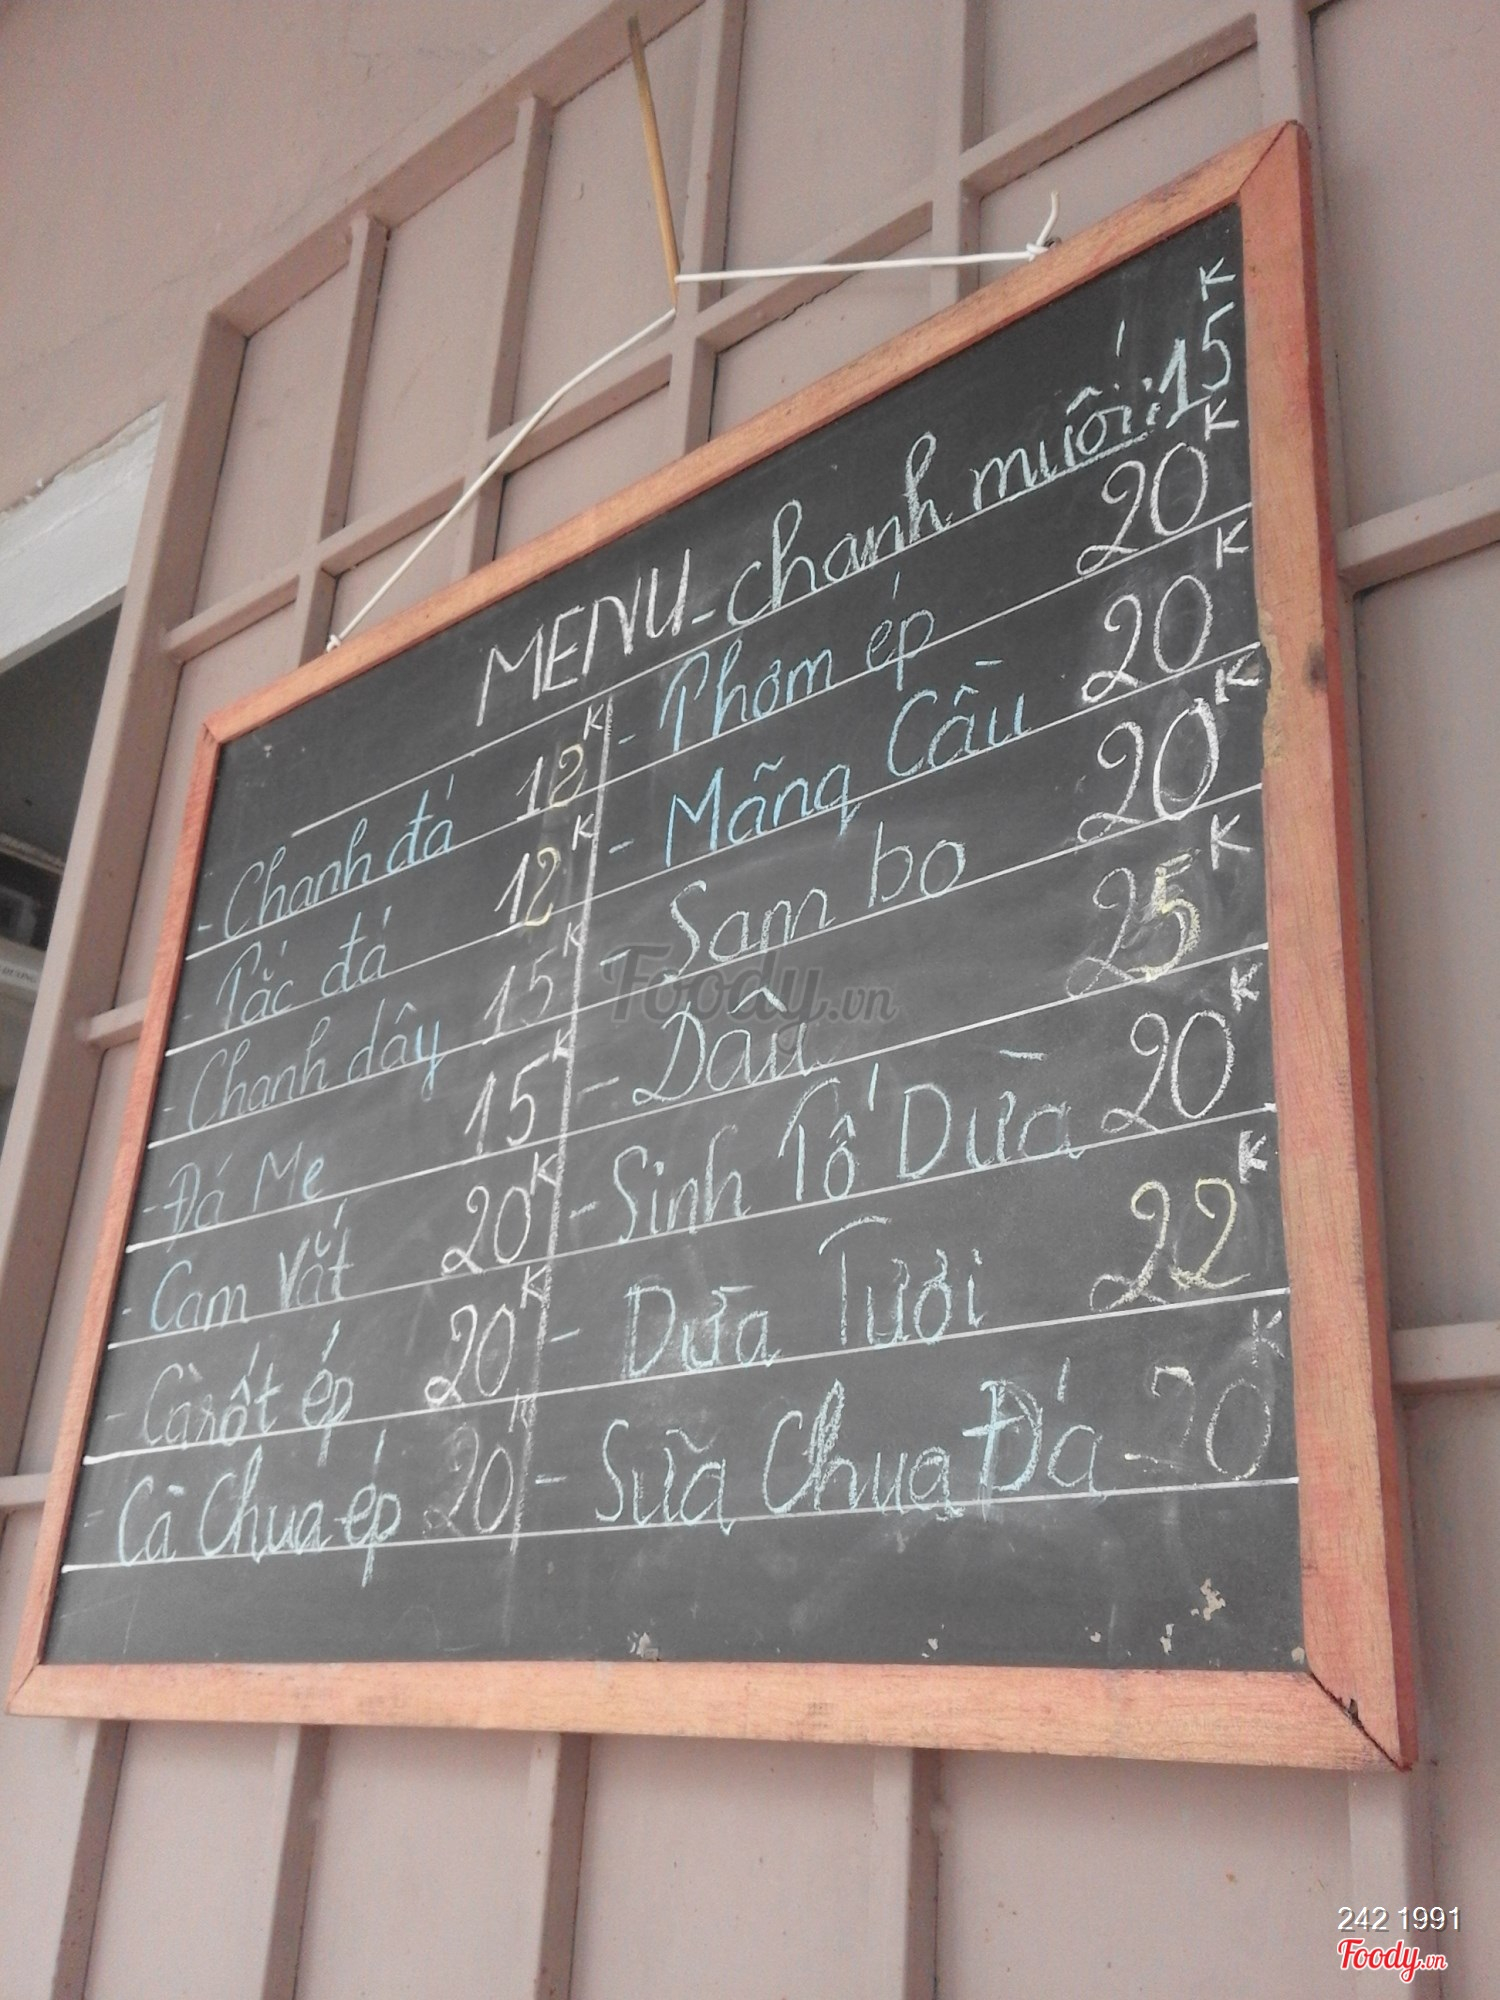 MENU - chanh muối: 15K
- Chanh đá 12K
- Tắc đá 12K
- Chanh dây 15K
- Đá Me 15K
- Cam Vắt 20K
- Càrốt ép 20K
- Cà Chua ép 20K
- Thơm ép 20K
- Mãng Cầu 20K
- Sam bo 20K
- Dâu 25K
- Sinh Tố Dừa 20K
- Dừa Tươi 22K
- Sữa Chua Đá - 20K
Foody.vn
242 1991
Foody.vn